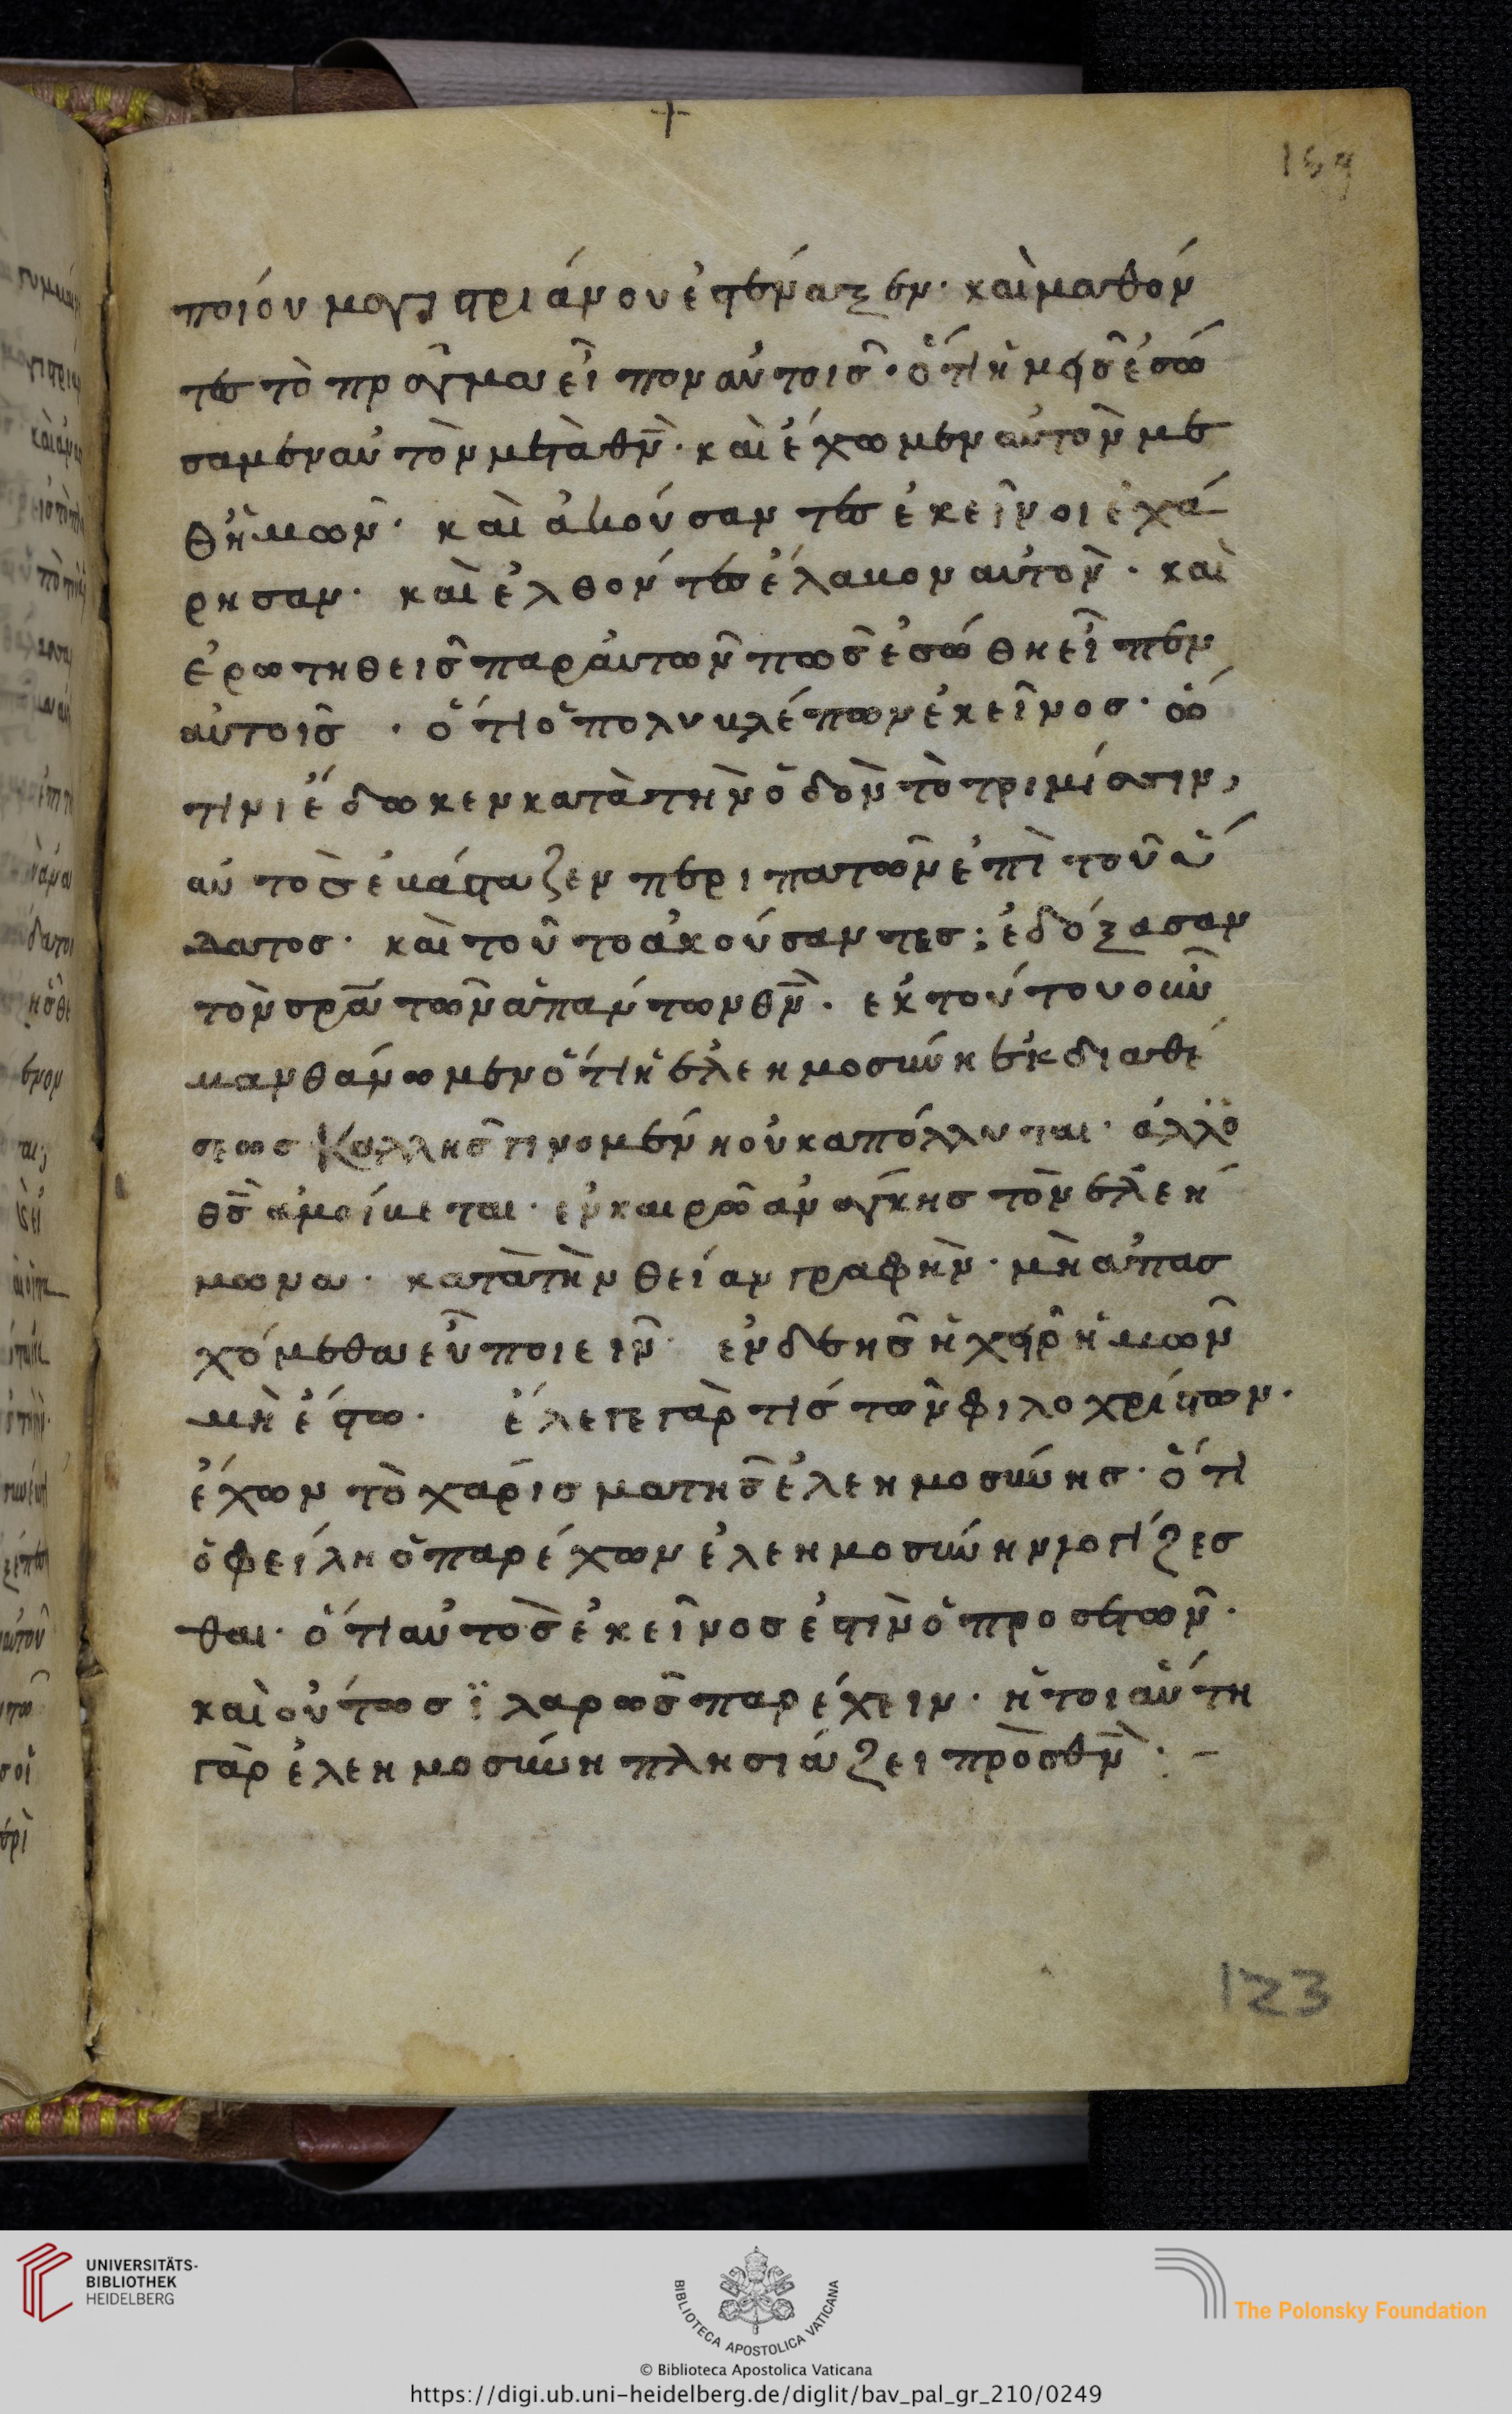 +
159
ποίον μογγηριάμον ἐστέναξεν· καὶ μαθόν
τες τὸ πρᾶγμα εἶπον αὐτοῖς· ὅτι ἡμεῖς ἐσώ
σαμεν αὐτὸν μετὰ θν· καὶ ἔχωμεν αὐτὸν με
θ ἡμῶν· καὶ ἀκούσαντες ἐκεῖνοι ἐχά
ρησαν· καὶ ἐλθόντες ἔλαβον αὐτὸν· καὶ
ἐρωτηθεὶς παρ αὐτῶν πῶς ἐσώθη εἶπεν
αὐτοῖς · ὅτι ὁ πολυβλέπων ἐκεῖνος· ὧ
τινι ἔδωκεν κατὰ τὴν ὁδὸν τὸ τριμίσιν,
αὐτὸς ἐβάσταζεν περιπατῶν ἐπὶ τοῦ ὕ
δατος· καὶ τοῦτο ἀκούσαντες; ἐδόξασαν
τὸν σρα τῶν ἁπάντων θν· ἐκ τούτου οὖν
μανθάνωμεν ὅτι ἡ ἐλεημοσύνη ἐκ διαθέ
σεως καλλῆς γινομένη οὐκ απόλλυται· ἀλλ ὁ
θς ἀμοίβεται· ἐν καιρῶ ἀνάγκης τὸν ἐλεή
μωνα· κατὰ τὴν θείαν γραφὴν· μὴ ἀπασ
χόμεθα εὖ ποιεῖν· ενδεὴς ἡ χεὶρ ἡμῶν
μὴ ἔστω· ἔλεγε γὰρ τίς τῶν φιλοχρίστων·
ἔχων τὸ χάρισμα τῆς ἐλεημοσύνης· ὅτι
ὀφείλη ὁ παρέχων ἐλεημοσύνην λογίζεσ
θαι· ὅτι αὐτὸς ἐκεῖνος ἐστὶν ὁ προσαιτῶν·
καὶ οὕτως ϊλαρῶς παρέχειν· ἡ τοιαύτη
γὰρ ἐλεημοσύνη πλησιάζει πρὸς θν · –
123
UNIVERSITÄTS-
BIBLIOTHEK
HEIDELBERG
BIBLIOTECA APOSTOLICA VATICANA
The Polonsky Foundation
© Biblioteca Apostolica Vaticana
https://digi.ub.uni-heidelberg.de/diglit/bav_pal_gr_210/0249